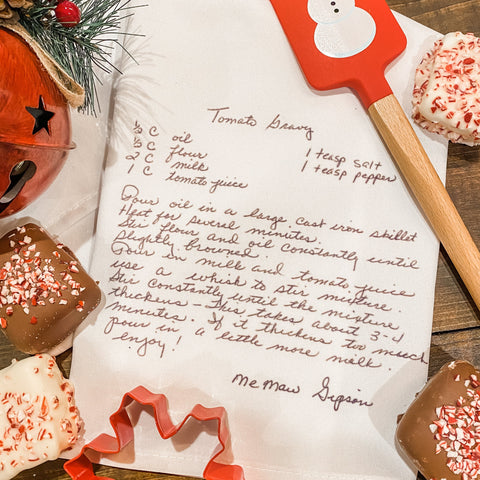 Tomato Gravy
⅓ C oil
⅓ C flour 1 teasp salt
2 C milk 1 teasp pepper
1 C tomato juice
Pour oil in a large cast iron skillet
Heat for several minutes.
Stir flour and oil constantly until
slightly browned.
Pour in milk and tomato juice
use a whisk to stir mixture.
Stir constantly until the mixture
thickens - This takes about 3-4
minutes. If it thickens too much
pour in a little more milk.
enjoy!
MeMaw Gipson